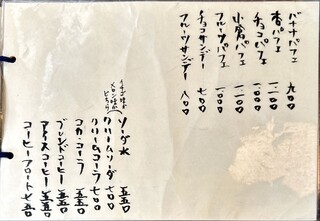 バナナパフェ 九〇〇
杏パフェ 一、一〇〇
チョコパフェ 一、一〇〇
小倉パフェ 一、〇〇〇
フルーツパフェ 一、一〇〇
チョコサンデー 七〇〇
フルーツサンデー 八〇〇
ソーダ水 五五〇
クリームソーダ 七〇〇
クリームコーラ 七〇〇
コカ・コーラ 五五〇
ブレンドコーヒー 五五〇
アイスコーヒー 五五〇
コーヒーフロート 七五〇